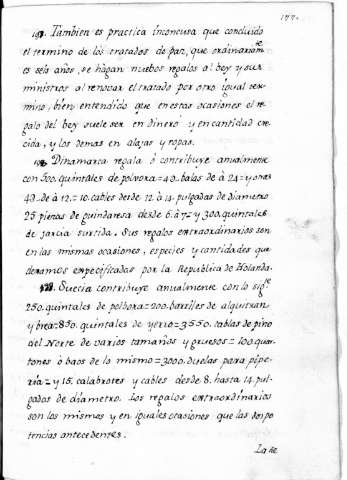 Tambien es practica inconcusa que concluido
el termino de los tratados de paz, que ordinariam.te
es seis años, se hagan nuebos regalos al bey y sus
ministros al renovar el tratado por otro igual ter-
mino, bien entendido que en estas ocasiones el re-
galo del bey suele ser en dinero y en cantidad cre-
cida, y los demas en alajas y ropas.
Dinamarca regala ó contribuye anualmente
con 500. quintales de polvora = 40. balas de à 24 = y otras
40. de à 12. = 10. cables desde 12. à 14. pulgadas de diametro
25 piezas de guindaresa desde 6. à 7 = y 300. quintales
de jarcia surtida. Sus regalos extraordinarios son
en las mismas ocasiones, especies y cantidades que
dexamos especificadas por la Republica de Holanda.
Suecia contribuye anualmente con lo sig.te
250. quintales de polbora = 200. barriles de alquitran
y brea = 850. quintales de yerro = 3550. tablas de pino
del Norte de varios tamaños y gruesos = 100. quar-
tones ò baos de lo mismo = 3000. duelas para pipe-
ria = y 15. calabrotes y cables desde 8. hasta 14. pul-
gadas de diametro. Los regalos extraordinarios
son los mismos y en iguales ocasiones que las dos po-
tencias antecedentes.